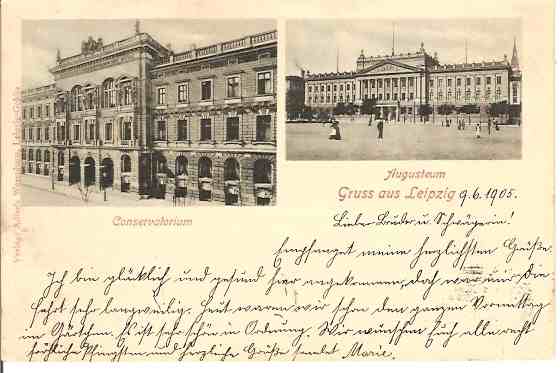 Augusteum
Gruss aus Leipzig 9.6.1905.
Conservatorium
Lieber Bruder u. Schwägerin!
Empfanget meine herzlichsten Grüße.
Ich bin glücklich und gesund hier angekommen, doch war mir die
Fahrt sehr langweilig. Heut waren wir schon den ganzen Vormittag
im Städtchen. Es ist sehr schön in Ordnung. Wir wünschen Euch alle recht
fröhliche Pfingsten und herzliche Grüße sendet Marie.
Verlag